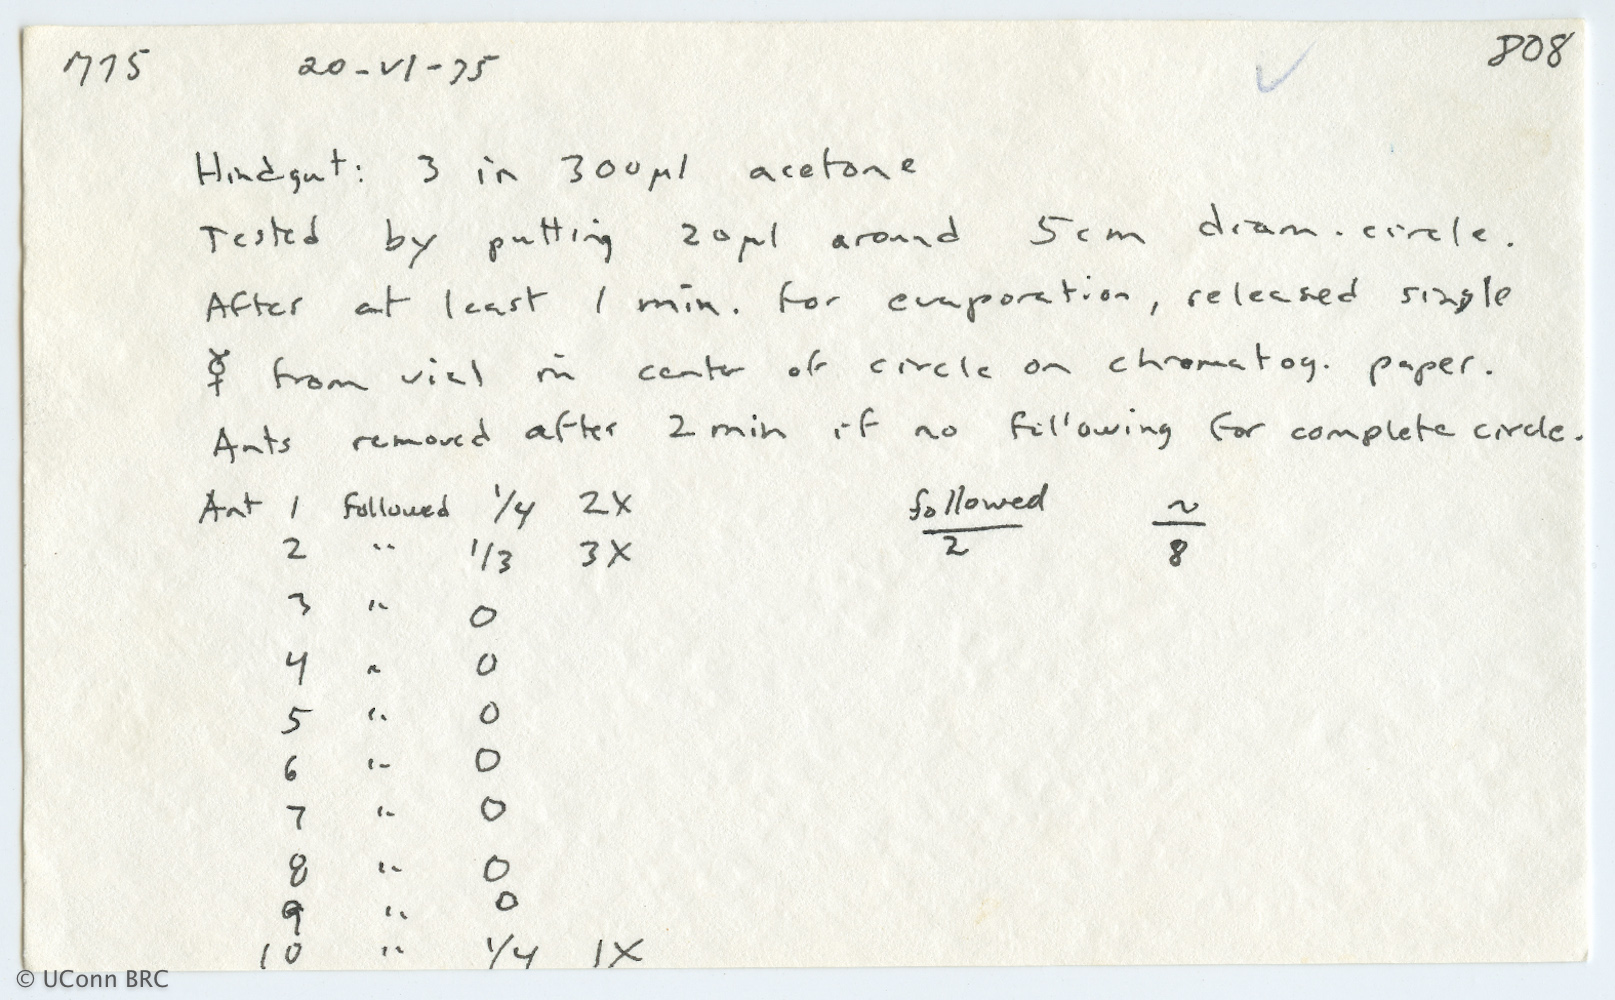 M75 20-VI-75 808
Hindgut: 3 in 300µl acetone
Tested by putting 20µl around 5cm diam. circle.
After at least 1 min. for evaporation, released single
☿ from vial in center of circle on chromatog. paper.
Ants removed after 2 min if no following for complete circle.
Ant 1 followed 1/4 2X followed ~
2 " 1/3 3X 2 8
3 " 0
4 " 0
5 " 0
6 " 0
7 " 0
8 " 0
9 " 0
10 " 1/4 1X
© UConn BRC